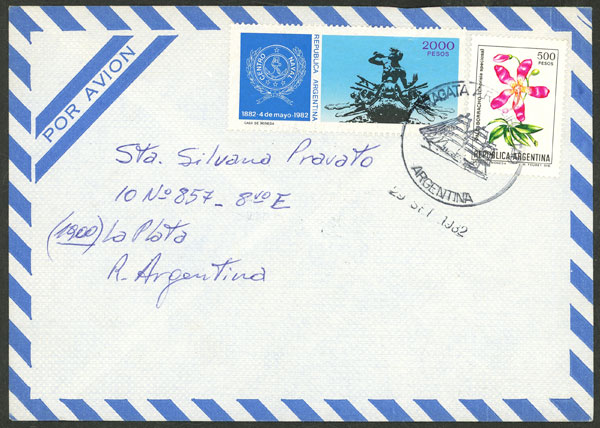 POR AVION
CENTRO NAVAL
1882-4 de mayo-1982
CASA DE MONEDA
REPUBLICA ARGENTINA
2000
PESOS
500
PESOS
REPUBLICA ARGENTINA
ARGENTINA
29 SET 1982
Sta. Silvana Pravato
10 Nº 857- 8vo E
(1900) La Plata
R. Argentina